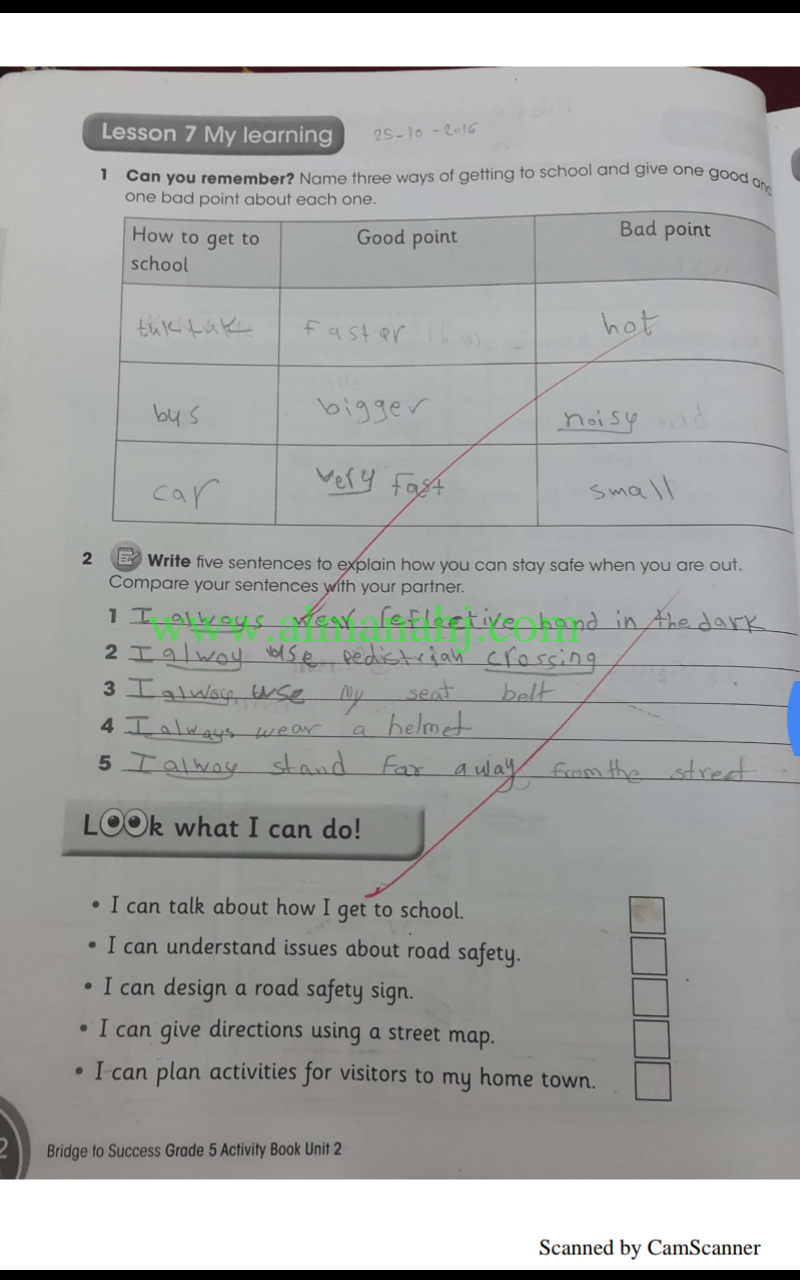 Lesson 7 My learning 25-10-2016
1 Can you remember? Name three ways of getting to school and give one good and
one bad point about each one.
How to get to school Good point Bad point
tuktuk faster hot
bus bigger noisy
car very fast small
2 Write five sentences to explain how you can stay safe when you are out.
Compare your sentences with your partner.
1 I always wear reflective band in the dark
www.almanahj.com
2 I alway use pedistrian crossing
3 I alway use my seat belt
4 I always wear a helmet
5 I alway stand far away from the street
Look what I can do!
• I can talk about how I get to school.
• I can understand issues about road safety.
• I can design a road safety sign.
• I can give directions using a street map.
• I can plan activities for visitors to my home town.
2
Bridge to Success Grade 5 Activity Book Unit 2
Scanned by CamScanner